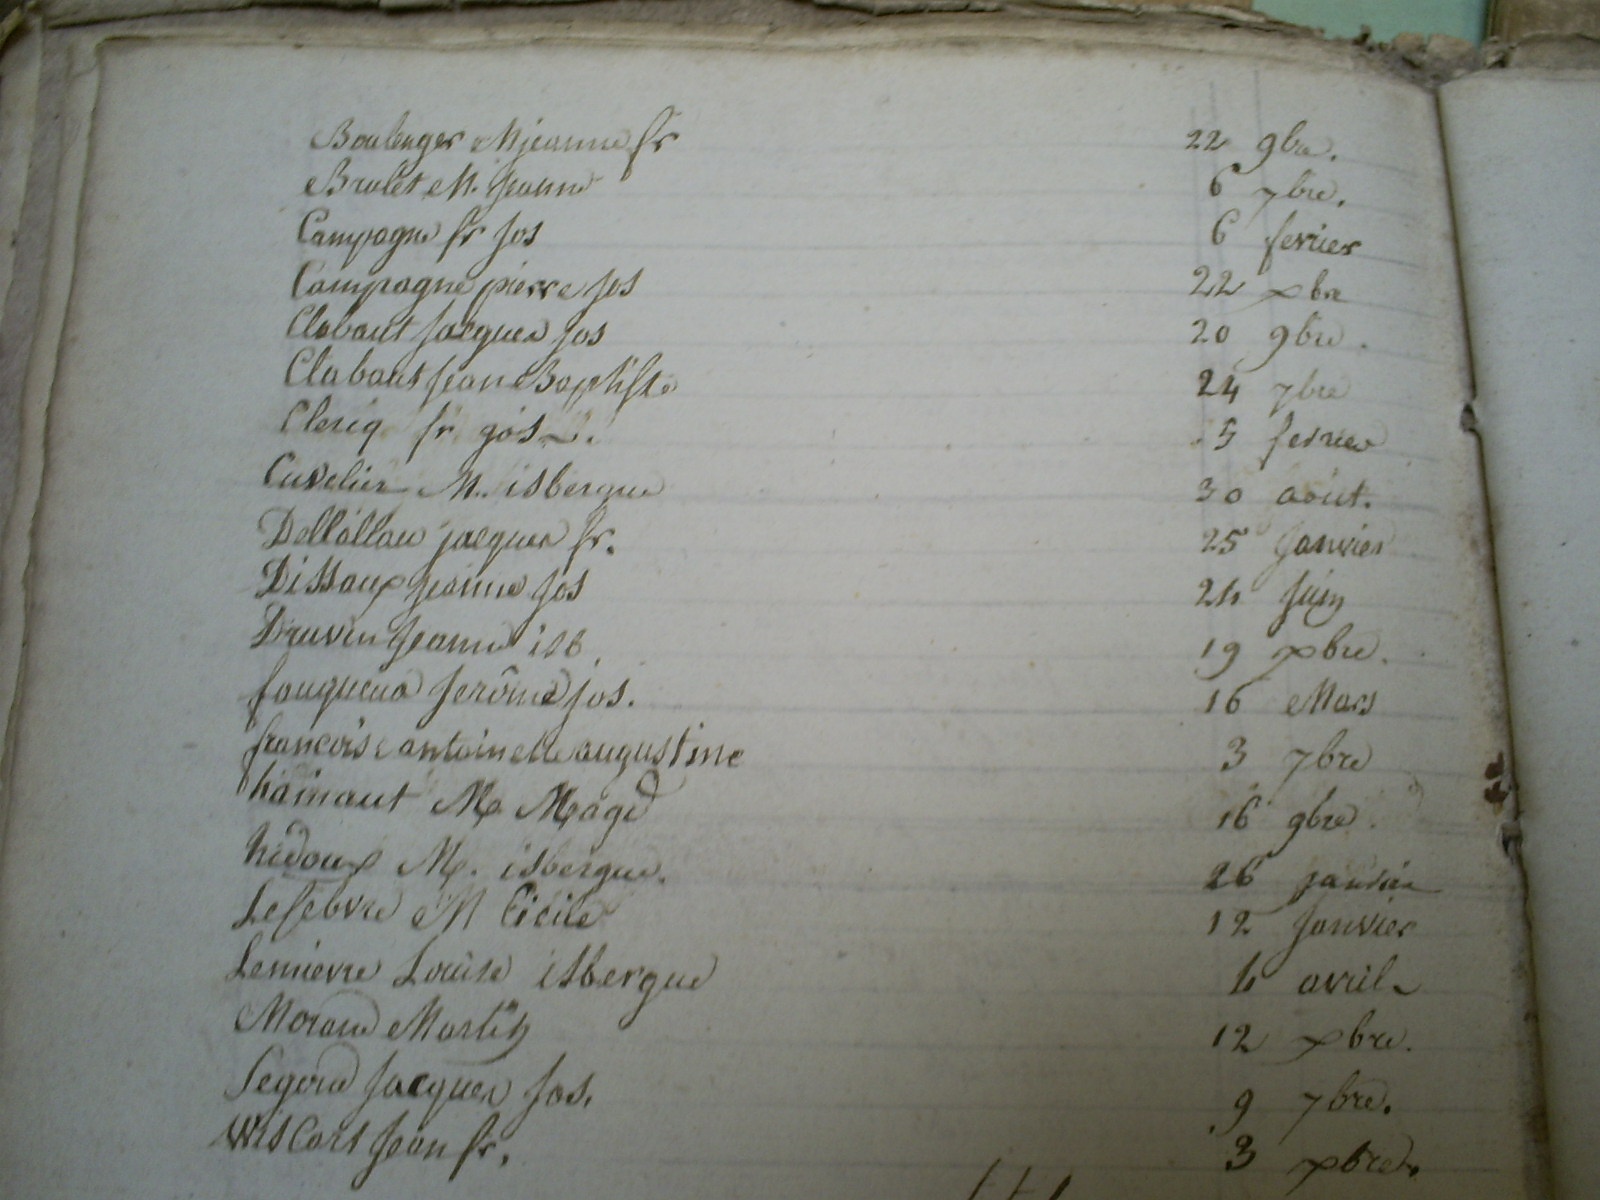 Boulenger Mjeanne fr 22 9bre.
Brulet M. jeanne 6 7bre.
Campagne fr jos 6 fevrier
Campagne pierre jos 22 xbre
Clabaut jacques jos 20 9bre.
Clabaut jean Baptiste 24 7bre
Clercq fr jos 5 fevrier
Cuvelier M. isbergue 30 août.
jacques fr. 25 janvier
Dissaux jeanne jos 24 juin
Druvin jeanne isb. 19 xbre.
fauqueua jerôme jos. 16 Mars
francoise antoinette augustine 3 7bre
hainaut M. Magd 16 9bre.
hidoux M. isbergue. 26 janvier
Lefebvre M Cicile 12 janvier
Lemievre Louise isbergue 4 avril
Morand Martin 12 xbre.
Segond jacques jos. 9 7bre.
Wiscart jean fr. 3 xbre